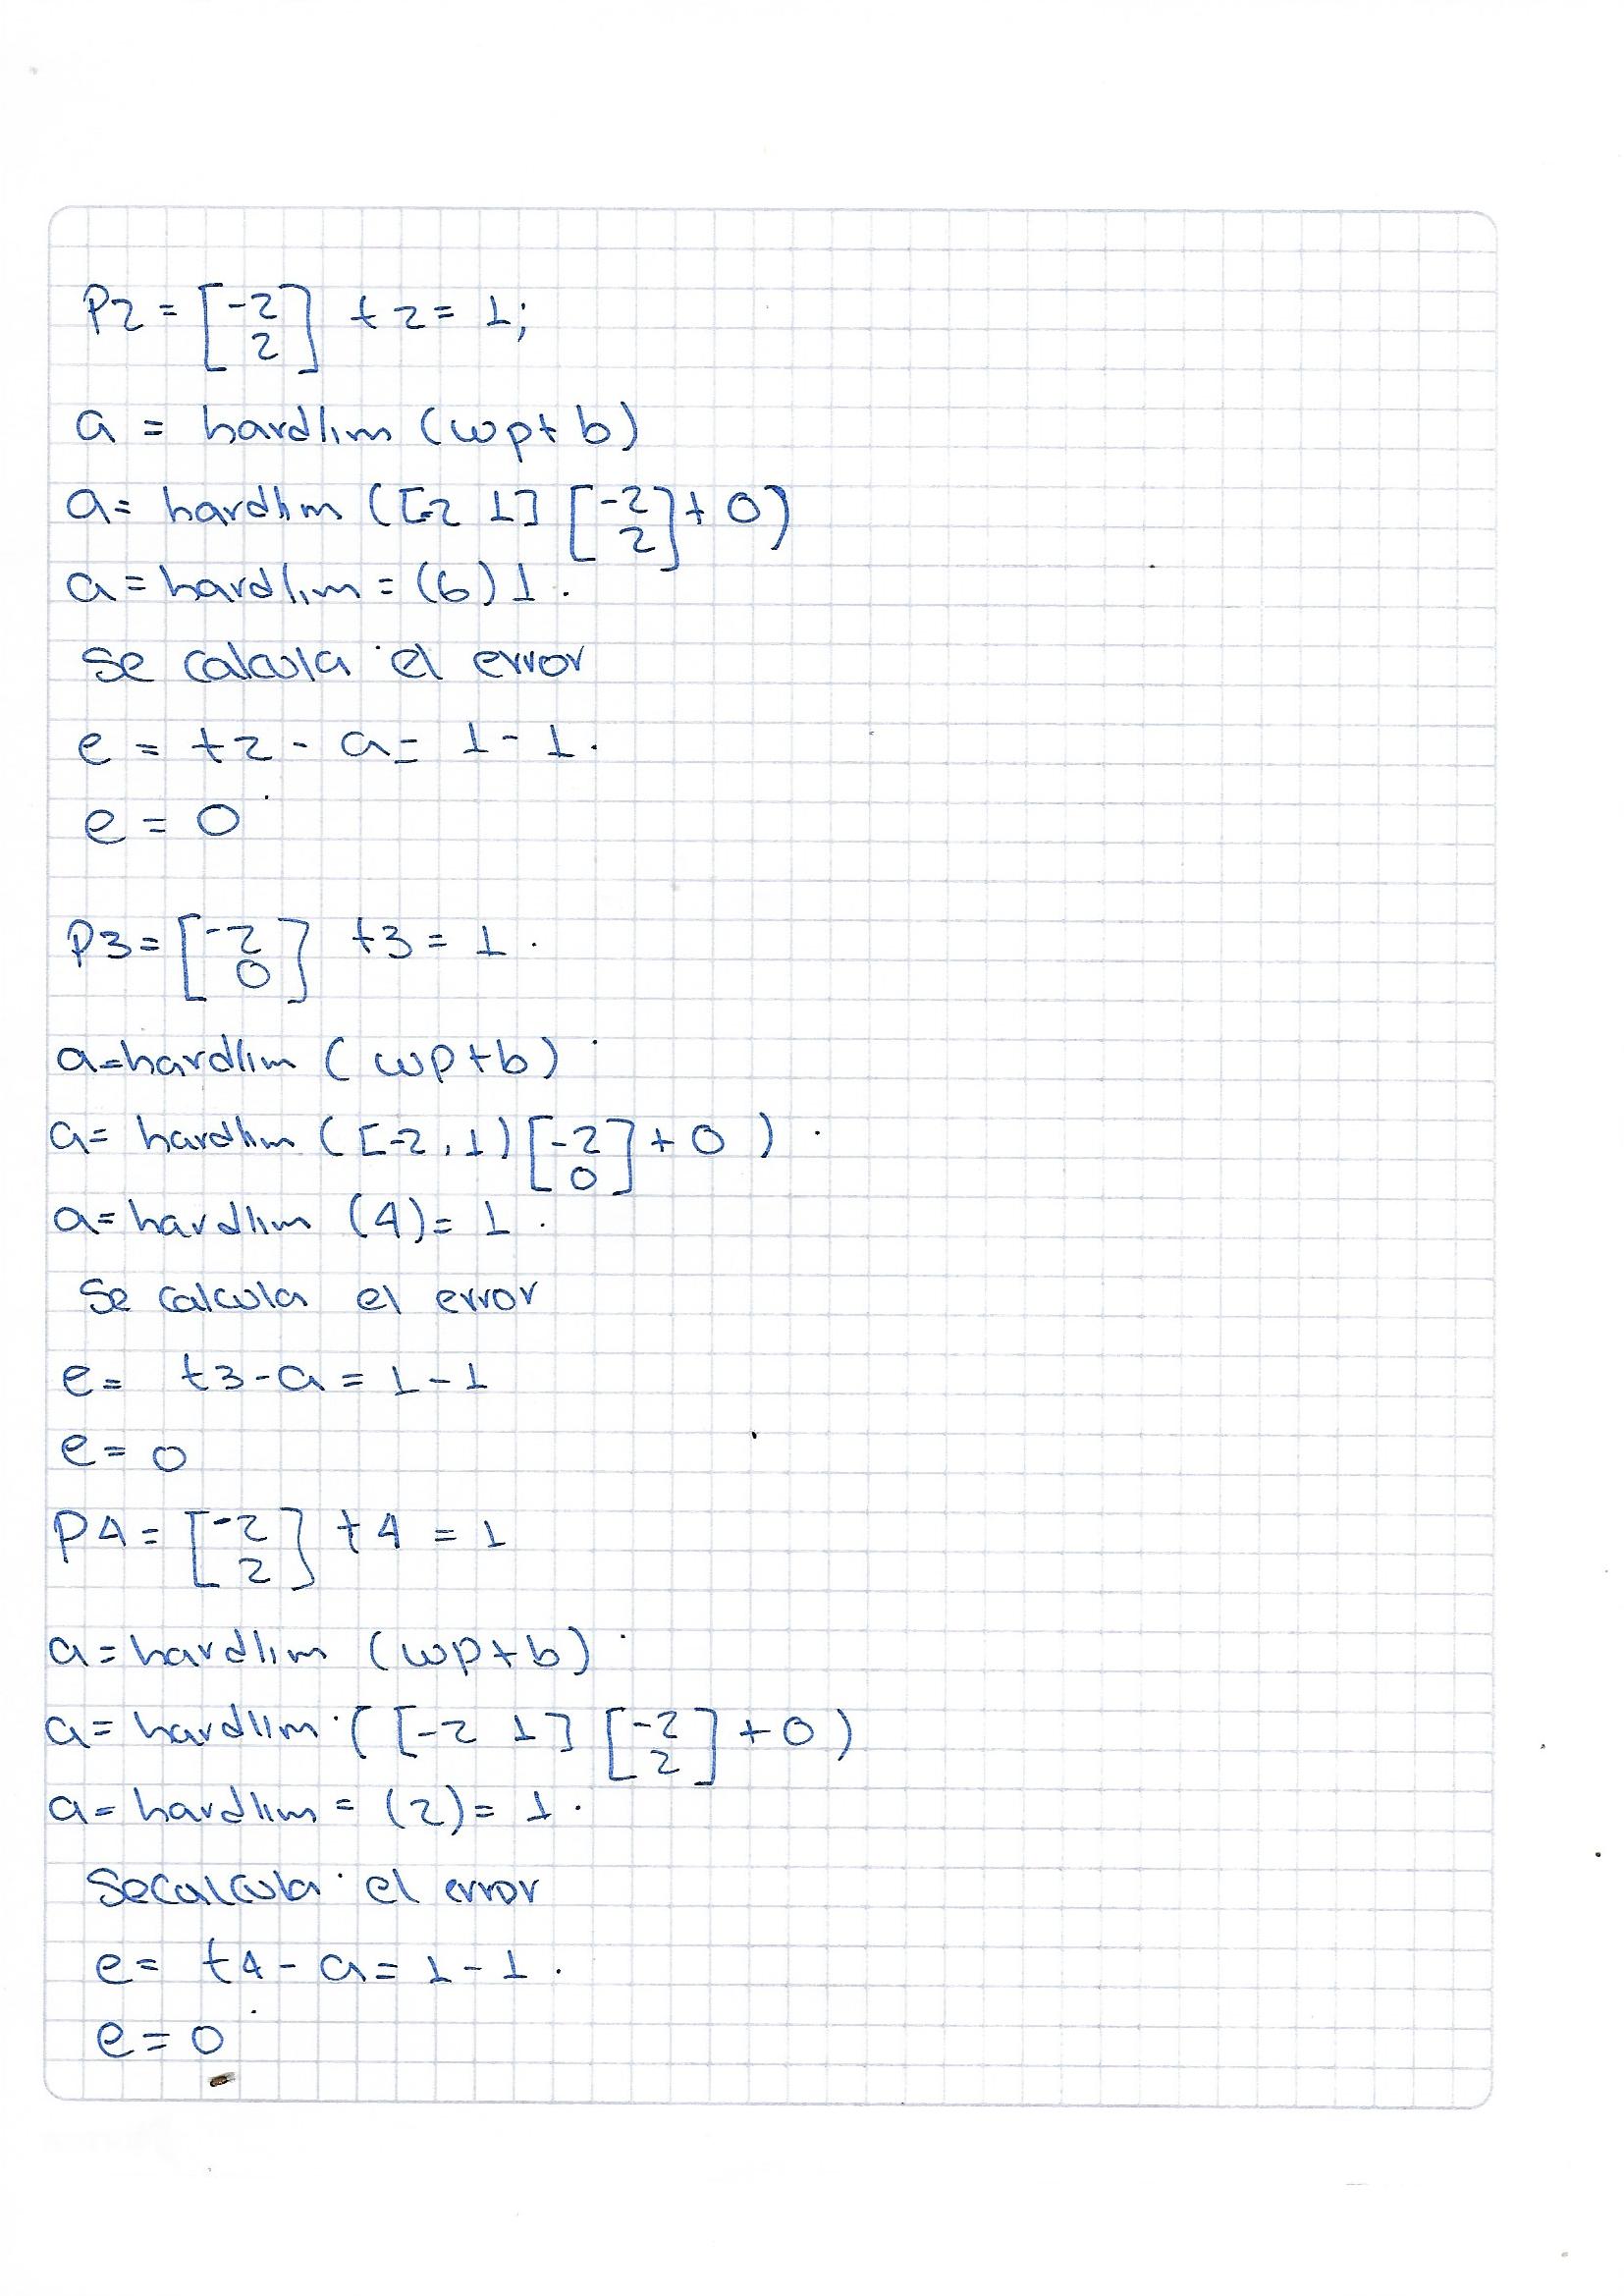 P2 = [-2 2] t2 = 1;
a = hardlim (wp+b)
a = hardlim ([-2 1] [-2 2] + 0)
a = hardlim = (6) 1.
Se calcula el error
e = t2 - a = 1 - 1.
e = 0
P3 = [-2 0] t3 = 1.
a=hardlim (wp+b)
a = hardlim ([-2,1) [-2 0] + 0)
a = hardlim (4) = 1.
Se calcula el error
e = t3 - a = 1 - 1
e = 0
P4 = [-2 2] t4 = 1
a = hardlim (wp+b)
a = hardlim ([-2 1] [-2 2] + 0)
a = hardlim = (2) = 1.
Se calcula el error
e = t4 - a = 1 - 1.
e = 0